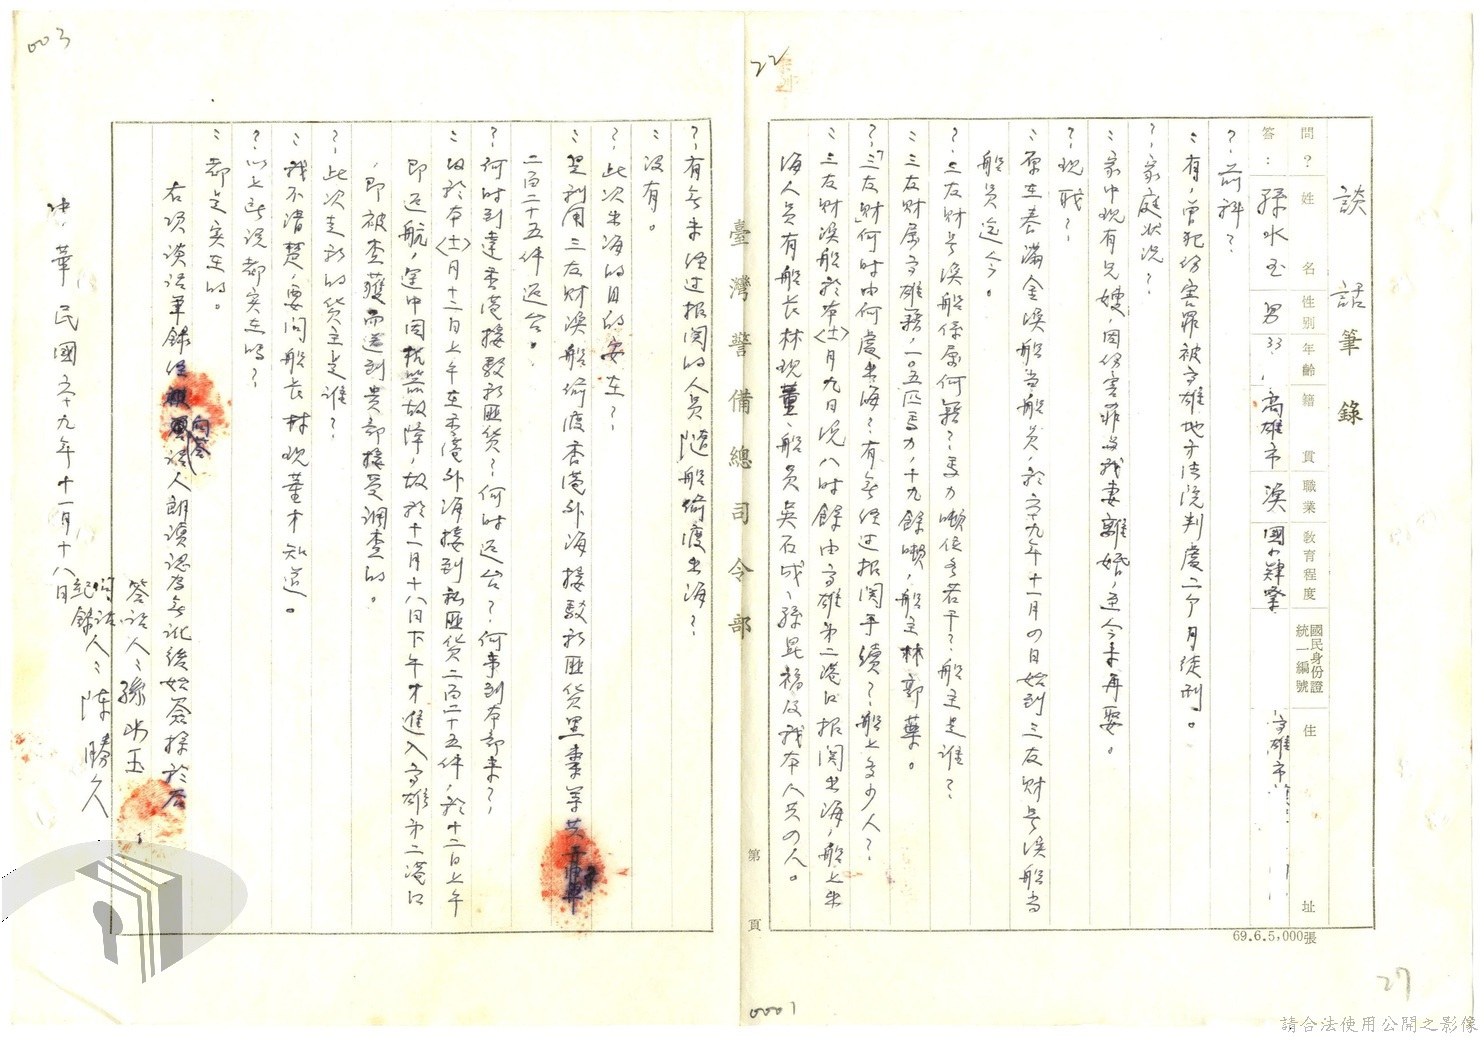 003
22
談話筆錄
問？
答：
姓名
性別
年齡
籍貫
職業
教育程度
國民身份證統一編號
住址
孫水玉
男
33
高雄市
漁
國小肄業
高雄市
？前科？
：有，曾犯伤害罪被高雄地方法院判處二个月徒刑。
？家庭狀況？
：家中現有兄嫂，因伤害罪與我妻離婚，至今未再娶。
？現職？
：原在春滿金渔船当船员，於六十九年十一月四日始到三友財号渔船当
船员迄今。
？三友財号渔船係属何籍？馬力噸位各若干？船主是谁？
：三友財属高雄籍，一0五匹馬力，十九餘噸，船主林郭葉。
？「三友財」何时由何處出海？有無经过报関手續？船上多少人？
：三友財渔船於本〈十一〉月九日晚八时餘由高雄第二港口报関出海，船上出
海人员有船长林現董、船员吳石成、孫昆福及我本人共四人。
臺灣警備總司令部
第
頁
69.6.5,000張
？有無未经过报関的人员随船偷渡出海？
：没有。
？此次出海的目的安在？
：是利用三友財渔船偷渡香港外海接駁私匪货黑棗等共
二百二十五件返台。
？何时到達香港接駁私匪货？何时返台？何事到本部来？
：故於本〈十一〉月十二日上午在香港外海接到私匪货二百二十五件，於十二日上午
即返航，途中因机器故障，故於十一月十八日下午才進入高雄第二港口
，即被查獲而送到贵部接受調查的。
？此次走私的货主是谁？
：我不清楚，要问船长林現董才知道。
？以上所说都实在吗？
：都是实在的。
右项谈话筆錄经向答话人朗读認为無訛後始簽捺於后
答话人：孫水玉
問话
紀錄人：陈勝久
中華民國六十九年十一月十八日
0001
27
請合法使用公開之影像